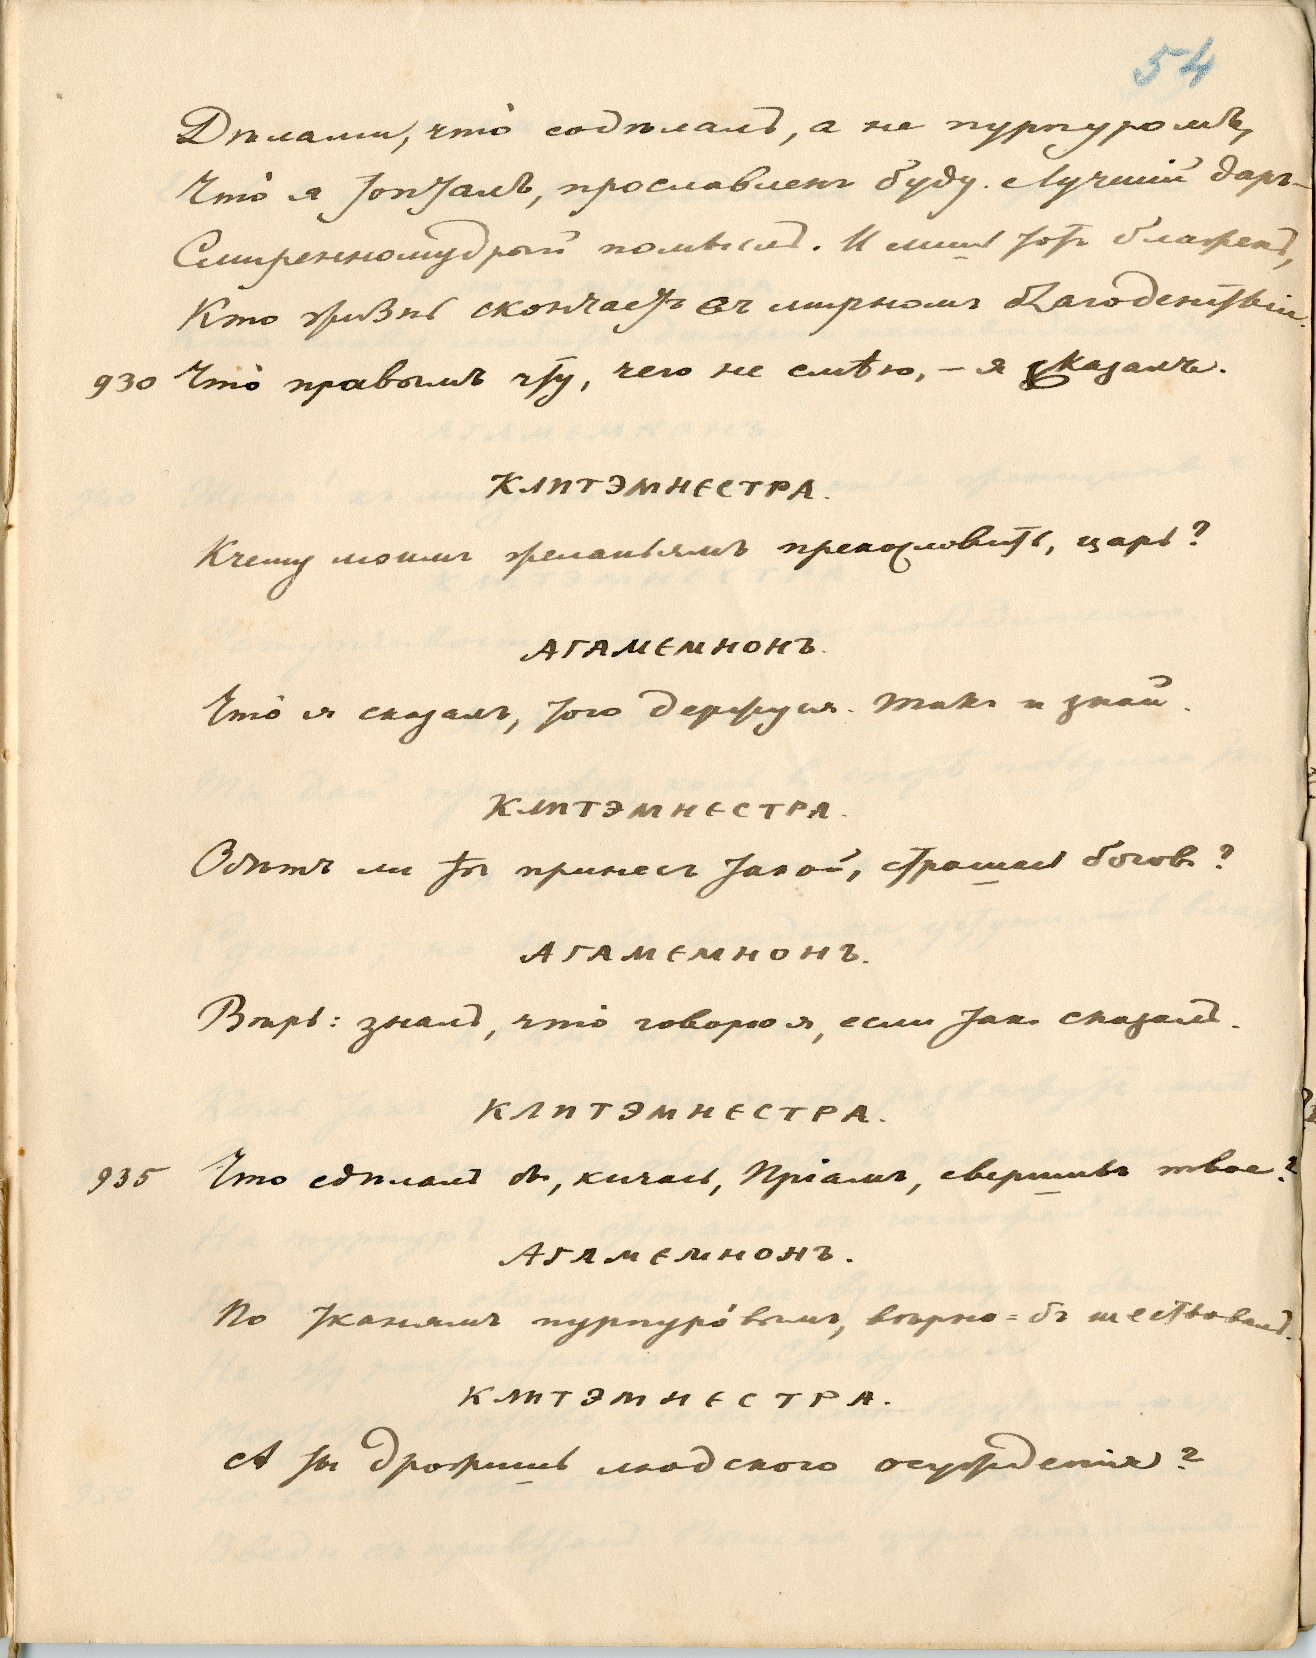 54
Дѣлами, что́ содѣлалъ, а не пурпуромъ,
Что́ я топталъ, прославленъ буду. Лучшій даръ –
Смиренномудрый помыслъ. И лишь тотъ блаженъ,
Кто жизнь скончаетъ въ мирномъ благоденствіи.
930 Что́ правымъ чту, чего не смѣю, – я сказалъ.
КЛИТЭМНЕСТРА.
Къ чему моимъ желаньямъ прекословить, царь?
АГАМЕМНОНЪ.
Что́ я сказалъ, того держуся. Такъ и знай.
КЛИТЭМНЕСТРА.
Обѣтъ ли ты принесъ такой, страшась боговъ?
АГАМЕМНОНЪ.
Вѣрь: зналъ, что́ говорю я, если такъ сказалъ.
КЛИТЭМНЕСТРА.
935 Что сдѣлалъ бы, кичась, Пріамъ, свершивъ твое?
АГАМЕМНОНЪ.
По тканямъ пурпуро́вымъ, вѣрно-бъ шествовалъ.
КЛИТЭМНЕСТРА.
А ты дрожишь людского осужденія?